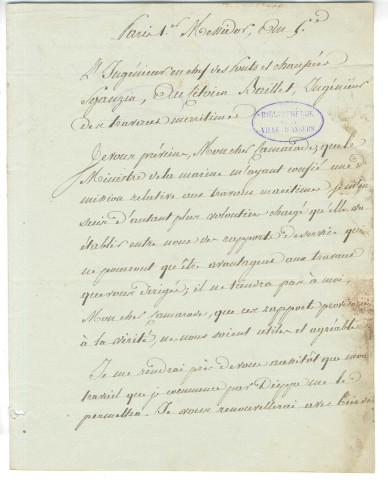 Paris 1.er Messidor, an 5.e
L'Ingénieur en chef des Ponts et chaussées
Sganzin, Au Citoien Baillet, Ingénieur
des travaux maritimes
BIBLIOTHÈQUE
VILLE D'ANGERS
Je vous préviens, Mon cher Camarade, que le
Ministre de la marine m'ayant confié une
mission relative aux travaux maritimes je m'en
suis d'autant plus volontiers chargé qu'elle va
établir entre nous des rapports de service qui
ne pourront qu'être avantageux aux travaux
que vous dirigés; il ne tiendra pas à moi,
Mon cher Camarade, que ces rapports
à la vérité, ne nous soient utiles et agréables
Je me rendrai près de vous aussitôt que mon
travail que je commence par Dieppe me le
permettra. Je vous renouvellerai avec bien